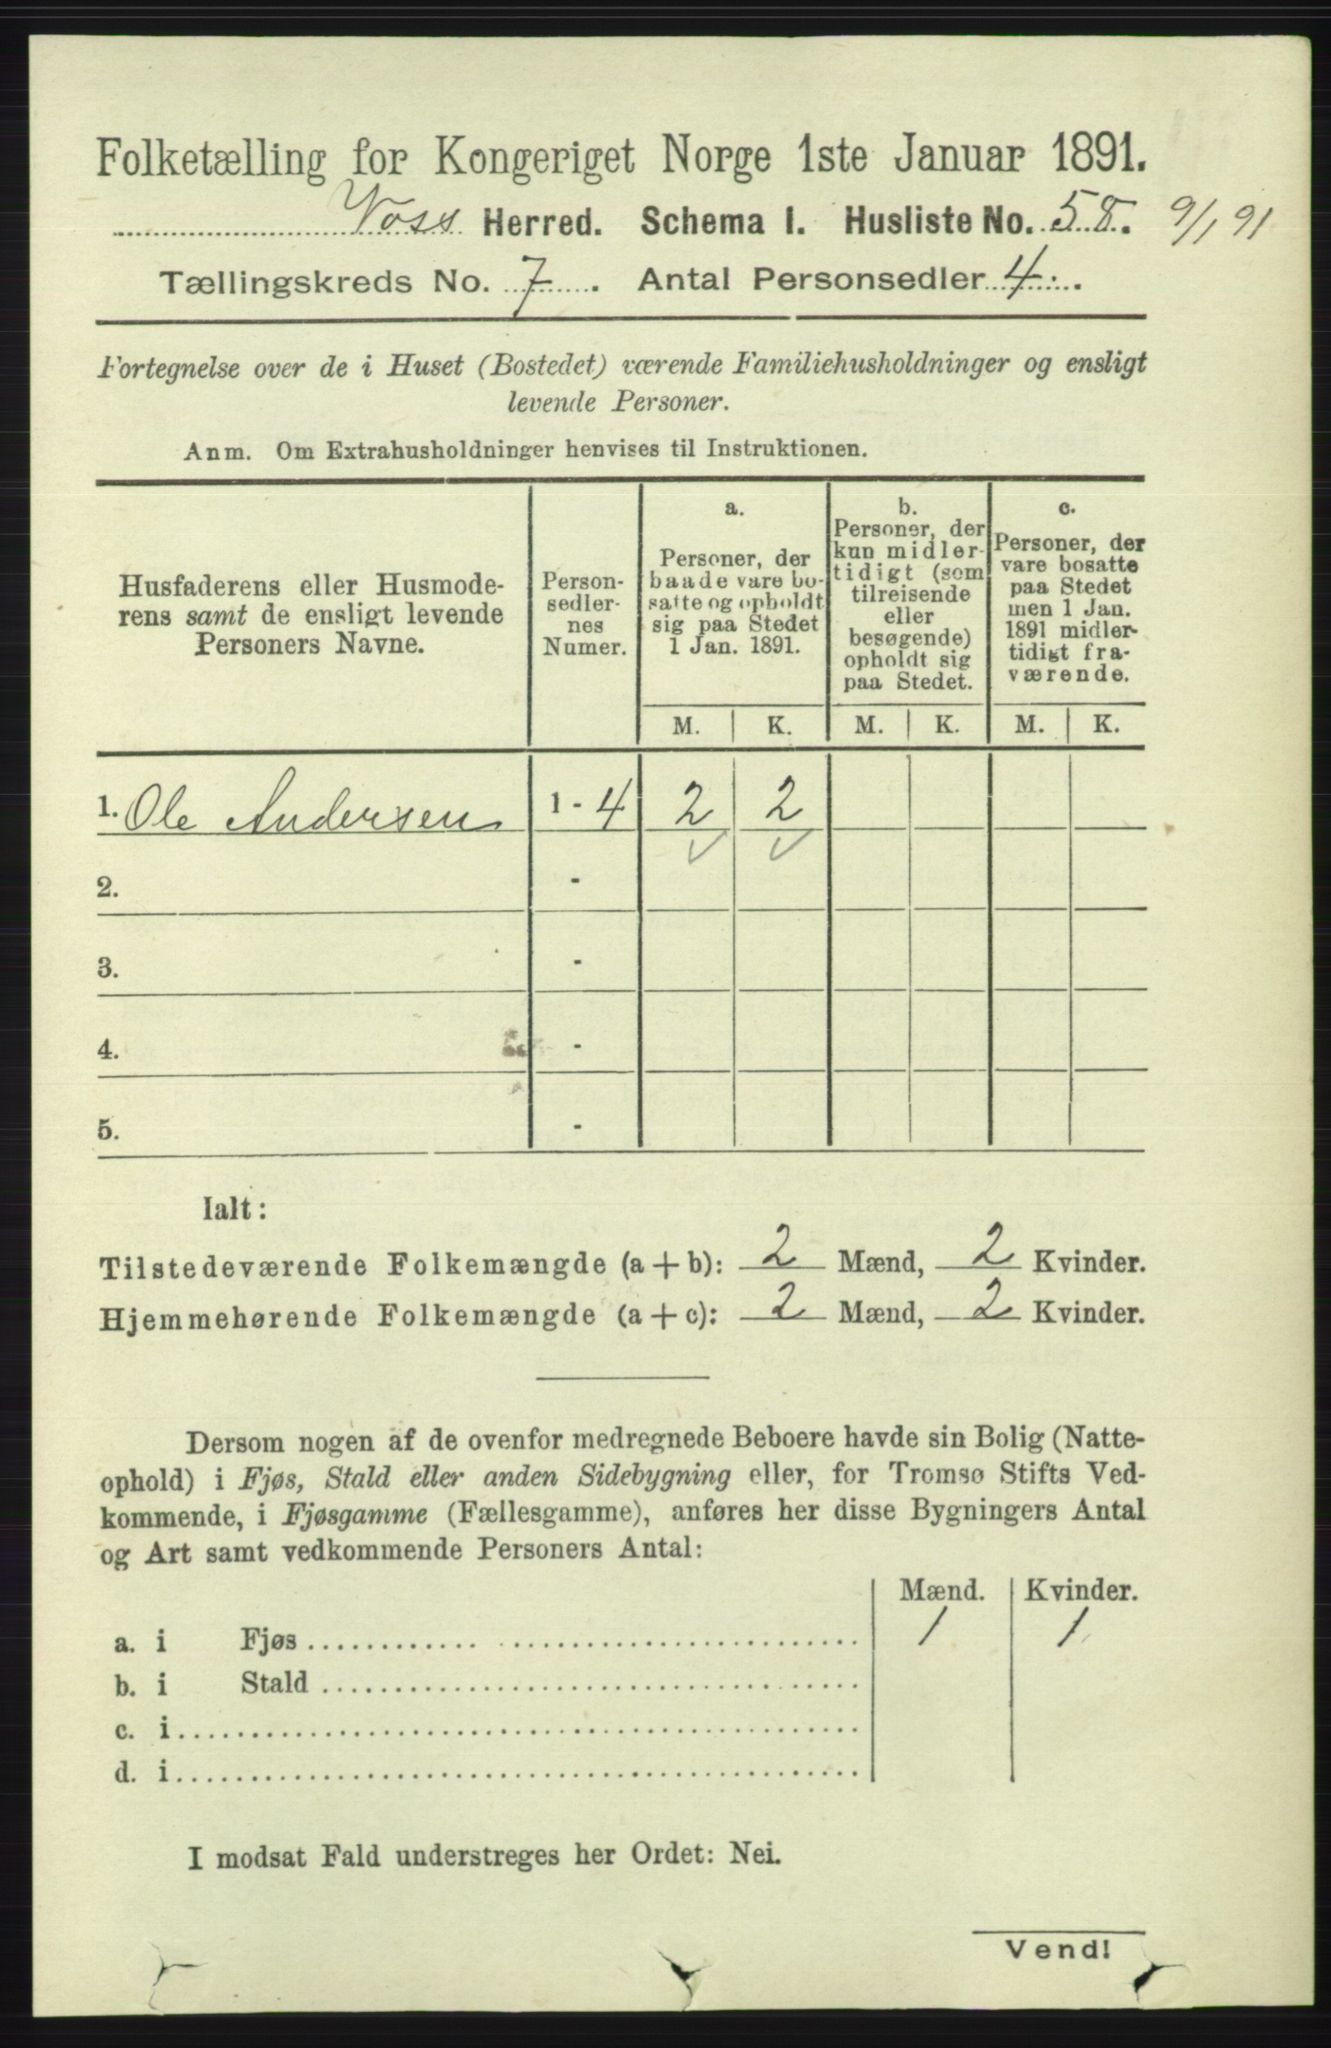 Folketælling for Kongeriget Norge 1ste Januar 1891.
Voss Herred. Schema I. Husliste No. 58. 9/1 91
Tællingskreds No. 7. Antal Personsedler 4.
Fortegnelse over de i Huset (Bostedet) værende Familiehusholdninger og ensligt
levende Personer.
Anm. Om Extrahusholdninger henvises til Instruktionen.
Husfaderens eller Husmode-
rens samt de ensligt levende
Personers Navne.
Person-
sedler-
nes
Numer.
a.
Personer, der
baade vare bo-
satte og opholdt
sig paa Stedet
1 Jan. 1891.
b.
Personer, der
kun midler-
tidigt (som
tilreisende
eller
besøgende)
opholdt sig
paa Stedet.
c.
Personer, der
vare bosatte
paa Stedet
men 1 Jan.
1891 midler-
tidigt fra-
værende.
M. K. M. K. M. K.
1. Ole Andersen 1 - 4 2 2
2. -
3. -
4. -
5. -
Ialt:
Tilstedeværende Folkemængde (a + b): 2 Mænd, 2 Kvinder.
Hjemmehørende Folkemængde (a + c): 2 Mænd, 2 Kvinder.
Dersom nogen af de ovenfor medregnede Beboere havde sin Bolig (Natte-
ophold) i Fjøs, Stald eller anden Sidebygning eller, for Tromsø Stifts Ved-
kommende, i Fjøsgamme (Fællesgamme), anføres her disse Bygningers Antal
og Art samt vedkommende Personers Antal:
Mænd. Kvinder.
a. i Fjøs 1 1
b. i Stald
c. i
d. i
I modsat Fald understreges her Ordet: Nei.
Vend!